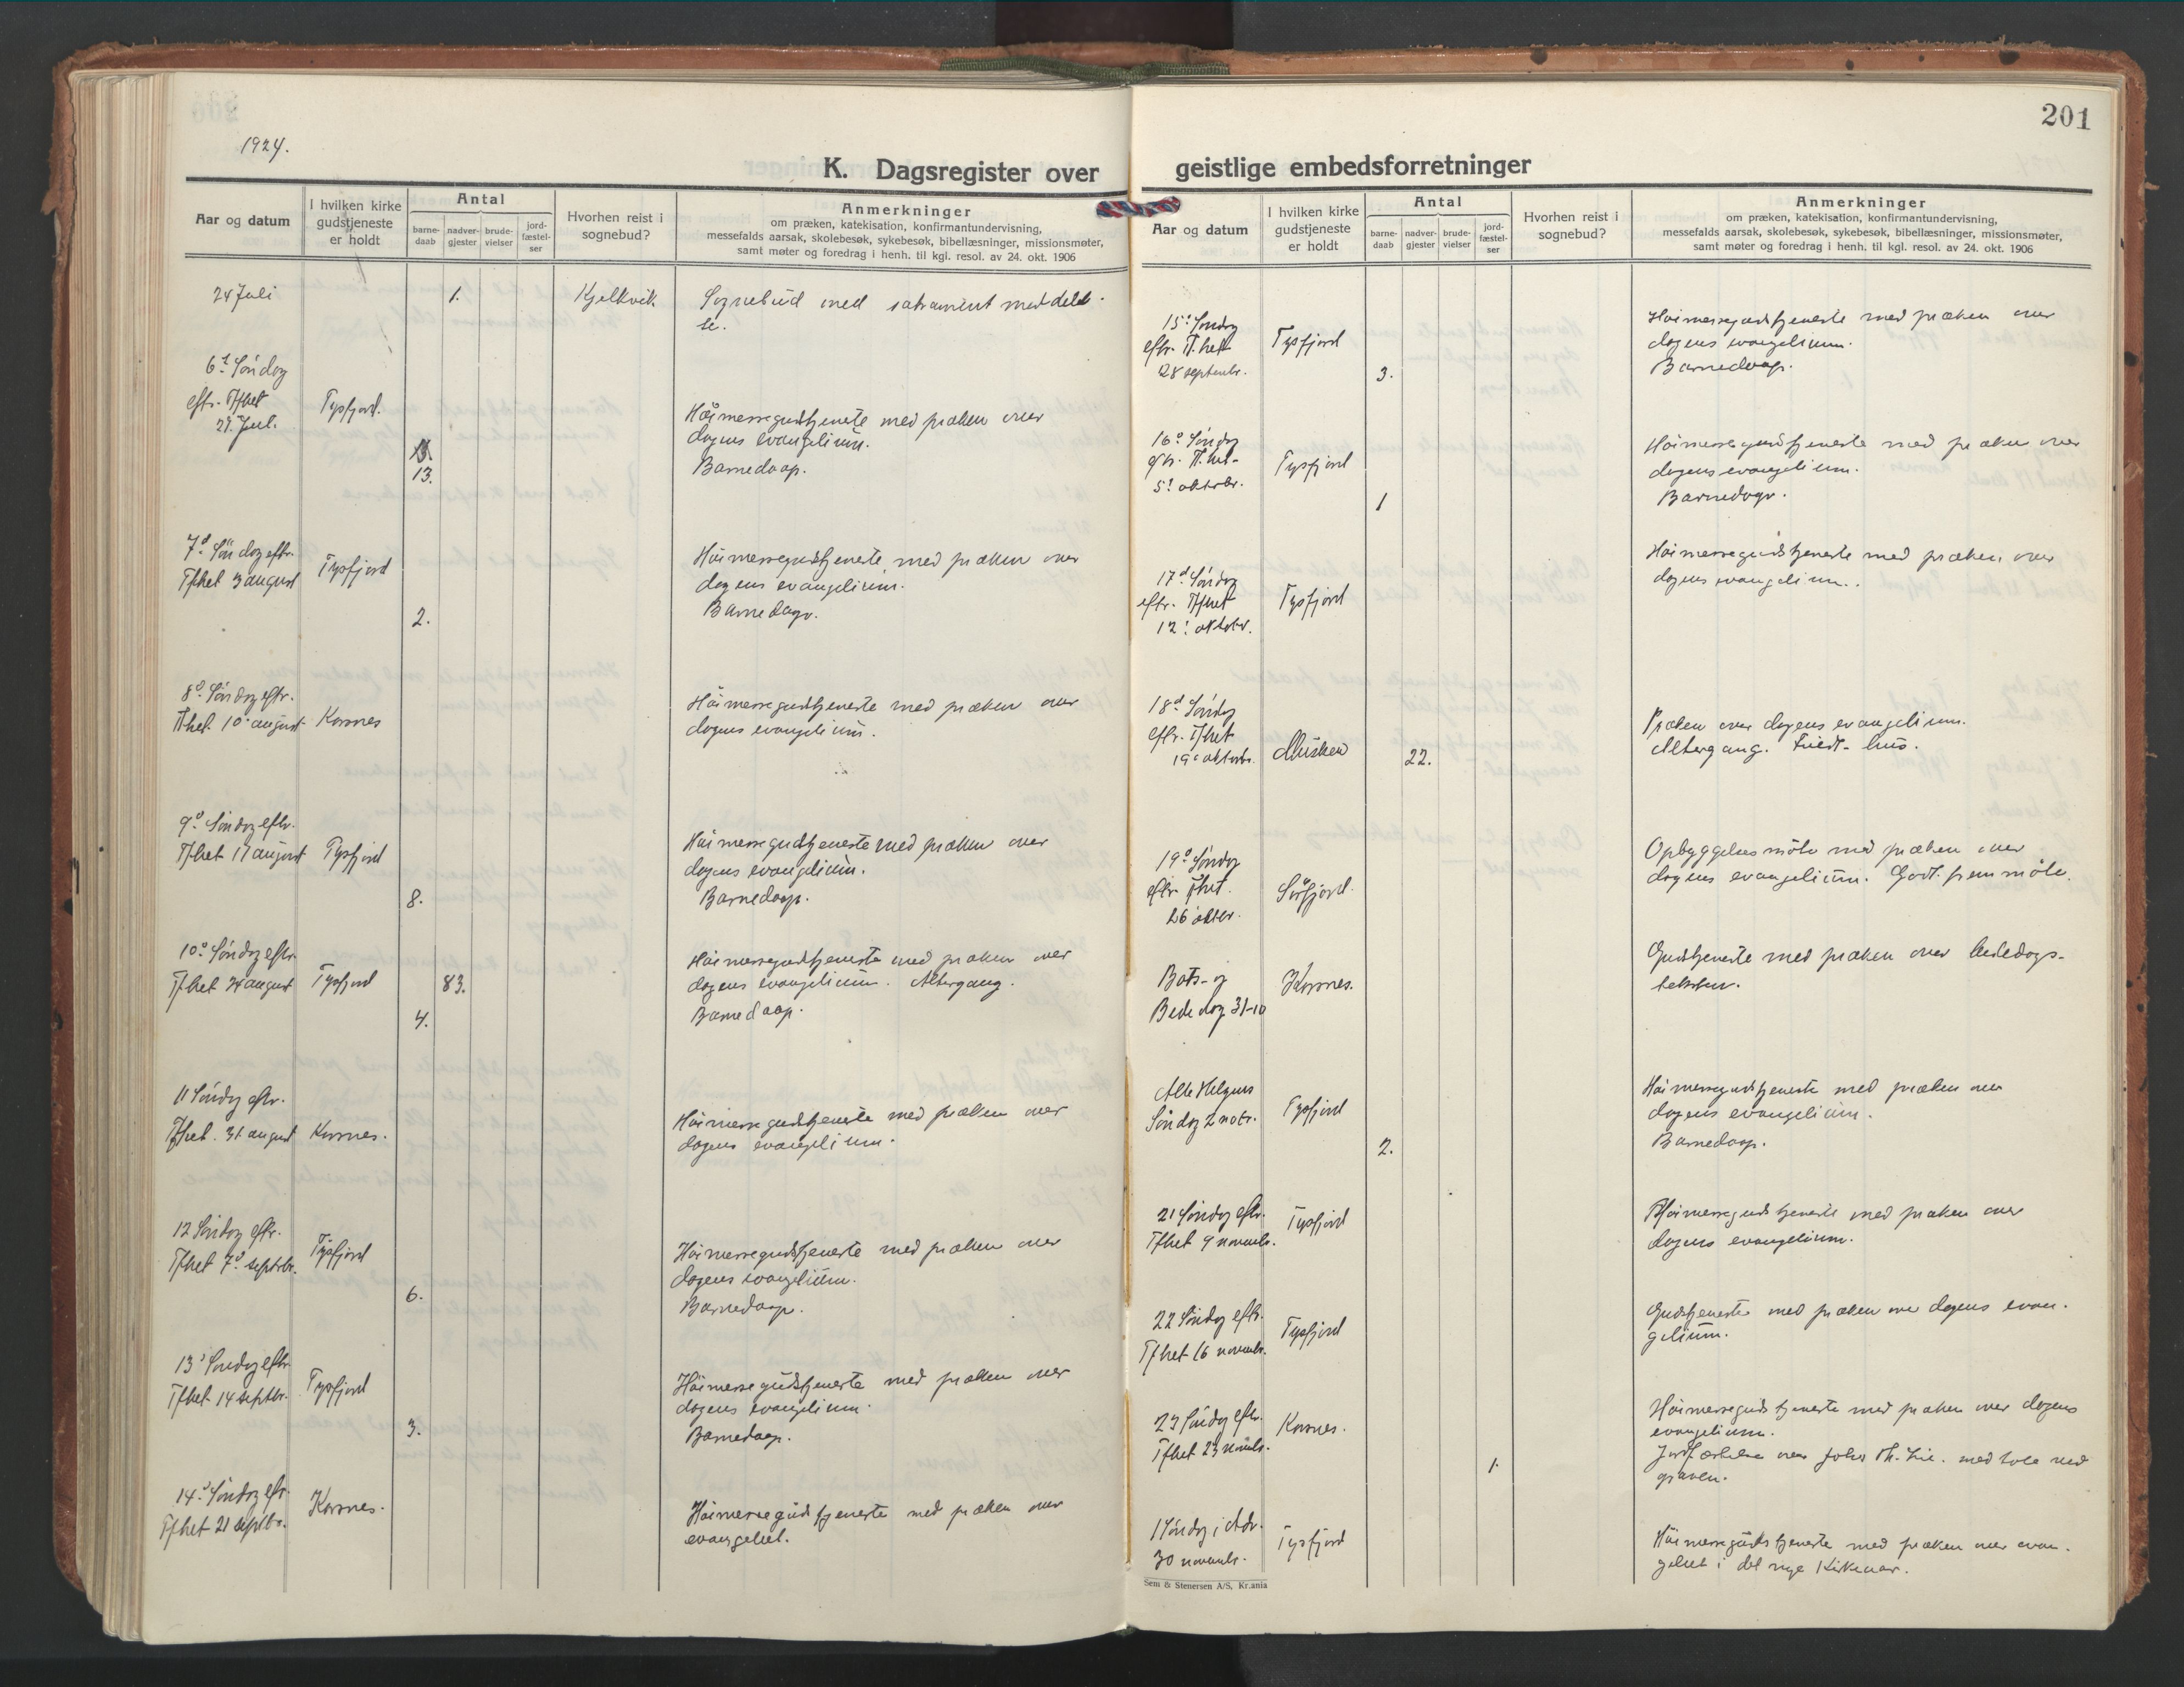 201
1924.
K. Dagsregister over geistlige embedsforretninger
Aar og datum
I hvilken kirke gudstjeneste er holdt
Antal
barne-daab
nadver-gjester
brude-vielser
jord-fæstel-ser
Hvorhen reist i sognebud?
Anmerkninger
om præken, katekisation, konfirmantundervisning,
messefalds aarsak, skolebesøk, sykebesøk, bibellæsninger, missionsmøter,
samt møter og foredrag i henh. til kgl. resol. av 24. okt. 1906
24 Juli
1.
Kjelkvik
Sognebud med sakrament meddelel-
se.
6t Søndag
eftr. Tfhet
27. Jul.
Tysfjord.
13.
Høimessegudstjeneste med præken over
dagens evangelium.
Barnedaap.
7d Søndag eftr.
Tfhet 3 august
Tysfjord
2.
Høimessegudstjeneste med præken over
dagens evangelium.
Barnedaap.
8d Søndag eftr.
Tfhet. 10. august
Korsnes
Høimessegudstjeneste med præken over
dagens evangelium.
9d Søndag eftr.
Tfhet 17 august
Tysfjord
8.
Høimessegudstjeneste med præken over
dagens evangelium.
Barnedaap.
10d Søndag eftr.
Tfhet 24 august
Tysfjord
83.
4.
Høimessegudstjeneste med præken over
dagens evangelium. Altergang.
Barnedaap.
11 Søndag eftr.
Tfhet. 31 august
Korsnes.
Høimessegudstjeneste med præken over
dagens evangelium.
12 Søndag eftr.
Tfhet 7d septbr.
Tysfjord
6.
Høimessegudstjeneste med præken over
dagens evangelium.
Barnedaap.
13d Søndag eftr.
Tfhet 14 septbr.
Tysfjord
3.
Høimessegudstjeneste med præken over
dagens evangelium.
Barnedaap.
14d Søndag eftr.
Tfhet 21 septbr.
Korsnes.
Høimessegudstjeneste med præken over
evangeliet.
Aar og datum
I hvilken kirke gudstjeneste er holdt
Antal
barne-daab
nadver-gjester
brude-vielser
jord-fæstel-ser
Hvorhen reist i sognebud?
Anmerkninger
om præken, katekisation, konfirmantundervisning,
messefalds aarsak, skolebesøk, sykebesøk, bibellæsninger, missionsmøter,
samt møter og foredrag i henh. til kgl. resol. av 24. okt. 1906
15d Søndag
eftr. Tfhet
28 septembr.
Tysfjord
3.
Høimessegudstjeneste med præken over
dagens evangelium.
Barnedaap.
16d Søndag
eftr. Tfhet
5d oktobr.
Tysfjord
1
Høimessegudstjeneste med præken over
dagens evangelium.
Barnedaap.
17d Søndag
eftr. Tfhet
12d oktobr.
Tysfjord
Høimessegudstjeneste med præken over
dagens evangelium.
18d Søndag
eftr. Tfhet
19d oktobr.
Musken
22.
Præken over dagens evangelium.
Altergang. hus.
19d Søndag
eftr. Tfhet.
26 oktbr.
Sørfjord.
Opbyggelsesmøte med præken over
dagens evangelium. Godt fremmøte.
Bots- og
Bededag 31-10
Korsnes.
Gudstjeneste med præken over bededags-
teksten.
Alle Helgens
Søndag 2 novbr.
Tysfjord
2.
Høimessegudstjeneste med præken over
dagens evangelium.
Barnedaap.
21 Søndag eftr.
Tfhet 9 novembr.
Tysfjord
Høimessegudstjeneste med præken over
dagens evangelium.
22 Søndag eftr.
Tfhet 16 novembr.
Tysfjord
Gudstjeneste med præken over dagens evan-
gelium.
23 Søndag eftr.
Tfhet 23 novembr.
Korsnes.
1.
Høimessegudstjeneste med præken over dagens
evangelium.
Jordfæstelse over Th. Lie. med tale ved
graven.
1 Søndag i Adv.
30 novembr.
Tysfjord
Høimessegudstjeneste med præken over evan-
geliet i det nye Kirkeaar.
Sem & Stenersen A/S, Kr.ania